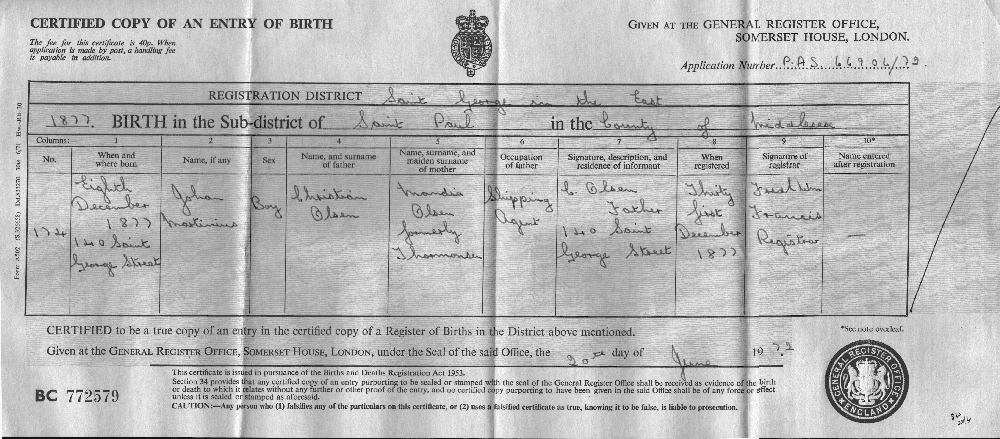 CERTIFIED COPY OF AN ENTRY OF BIRTH
GIVEN AT THE GENERAL REGISTER OFFICE,
SOMERSET HOUSE, LONDON.
The fee for this certificate is 40p. When
application is made by post, a handling fee
is payable in addition.
Application Number P.A.S. 66904/72.
REGISTRATION DISTRICT Saint George in the East
1877. BIRTH in the Sub-district of Saint Paul in the County of Middlesex
Columns: 1 2 3 4 5 6 7 8 9 10*
No.
When and
where born
Name, if any
Sex
Name, and surname
of father
Name, surname, and
maiden surname
of mother
Occupation
of father
Signature, description, and
residence of informant
When
registered
Signature of
registrar
Name entered
after registration
174
Eighth
December
1877
140 Saint
George Street
Johan
Martinius
Boy
Christian
Olsen
Olsen
formerly
Shipping
Agent
C. Olsen
Father
140 Saint
George Street
Thirty
first
December
1877
Francis
Registrar
—
CERTIFIED to be a true copy of an entry in the certified copy of a Register of Births in the District above mentioned.
*See note overleaf.
Given at the GENERAL REGISTER OFFICE, SOMERSET HOUSE, LONDON, under the Seal of the said Office, the 20th day of June 1972
BC 772579
This certificate is issued in pursuance of the Births and Deaths Registration Act 1953.
Section 34 provides that any certified copy of an entry purporting to be sealed or stamped with the seal of the General Register Office shall be received as evidence of the birth
or death to which it relates without any further or other proof of the entry, and no certified copy purporting to have been given in the said Office shall be of any force or effect
unless it is sealed or stamped as aforesaid.
CAUTION:—Any person who (1) falsifies any of the particulars on this certificate, or (2) uses a falsified certificate as true, knowing it to be false, is liable to prosecution.
GENERAL REGISTER OFFICE
ENGLAND